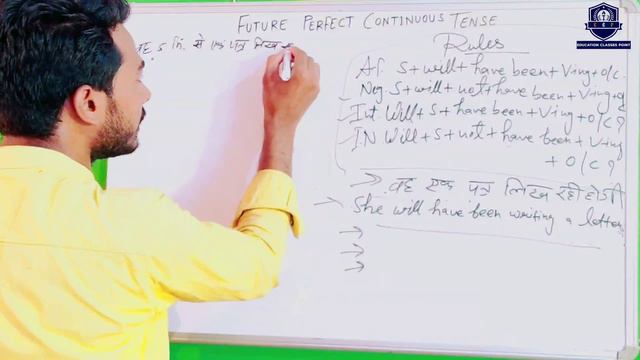 FUTURE PERFECT CONTINUOUS TENSE
वह 5 मि. से एक पत्र लिख र
Rules
Af. S + will + have been + V+ing + O/C.
Neg. S + will + not + have been + V+ing + O/
Int. Will + S + have been + V+ing + O/C?
I.N Will + S + not + have been + V+ing
+ O/C?
वह एक पत्र लिख रही होगी
She will have been writing a letter
ECP
EDUCATION CLASSES POINT